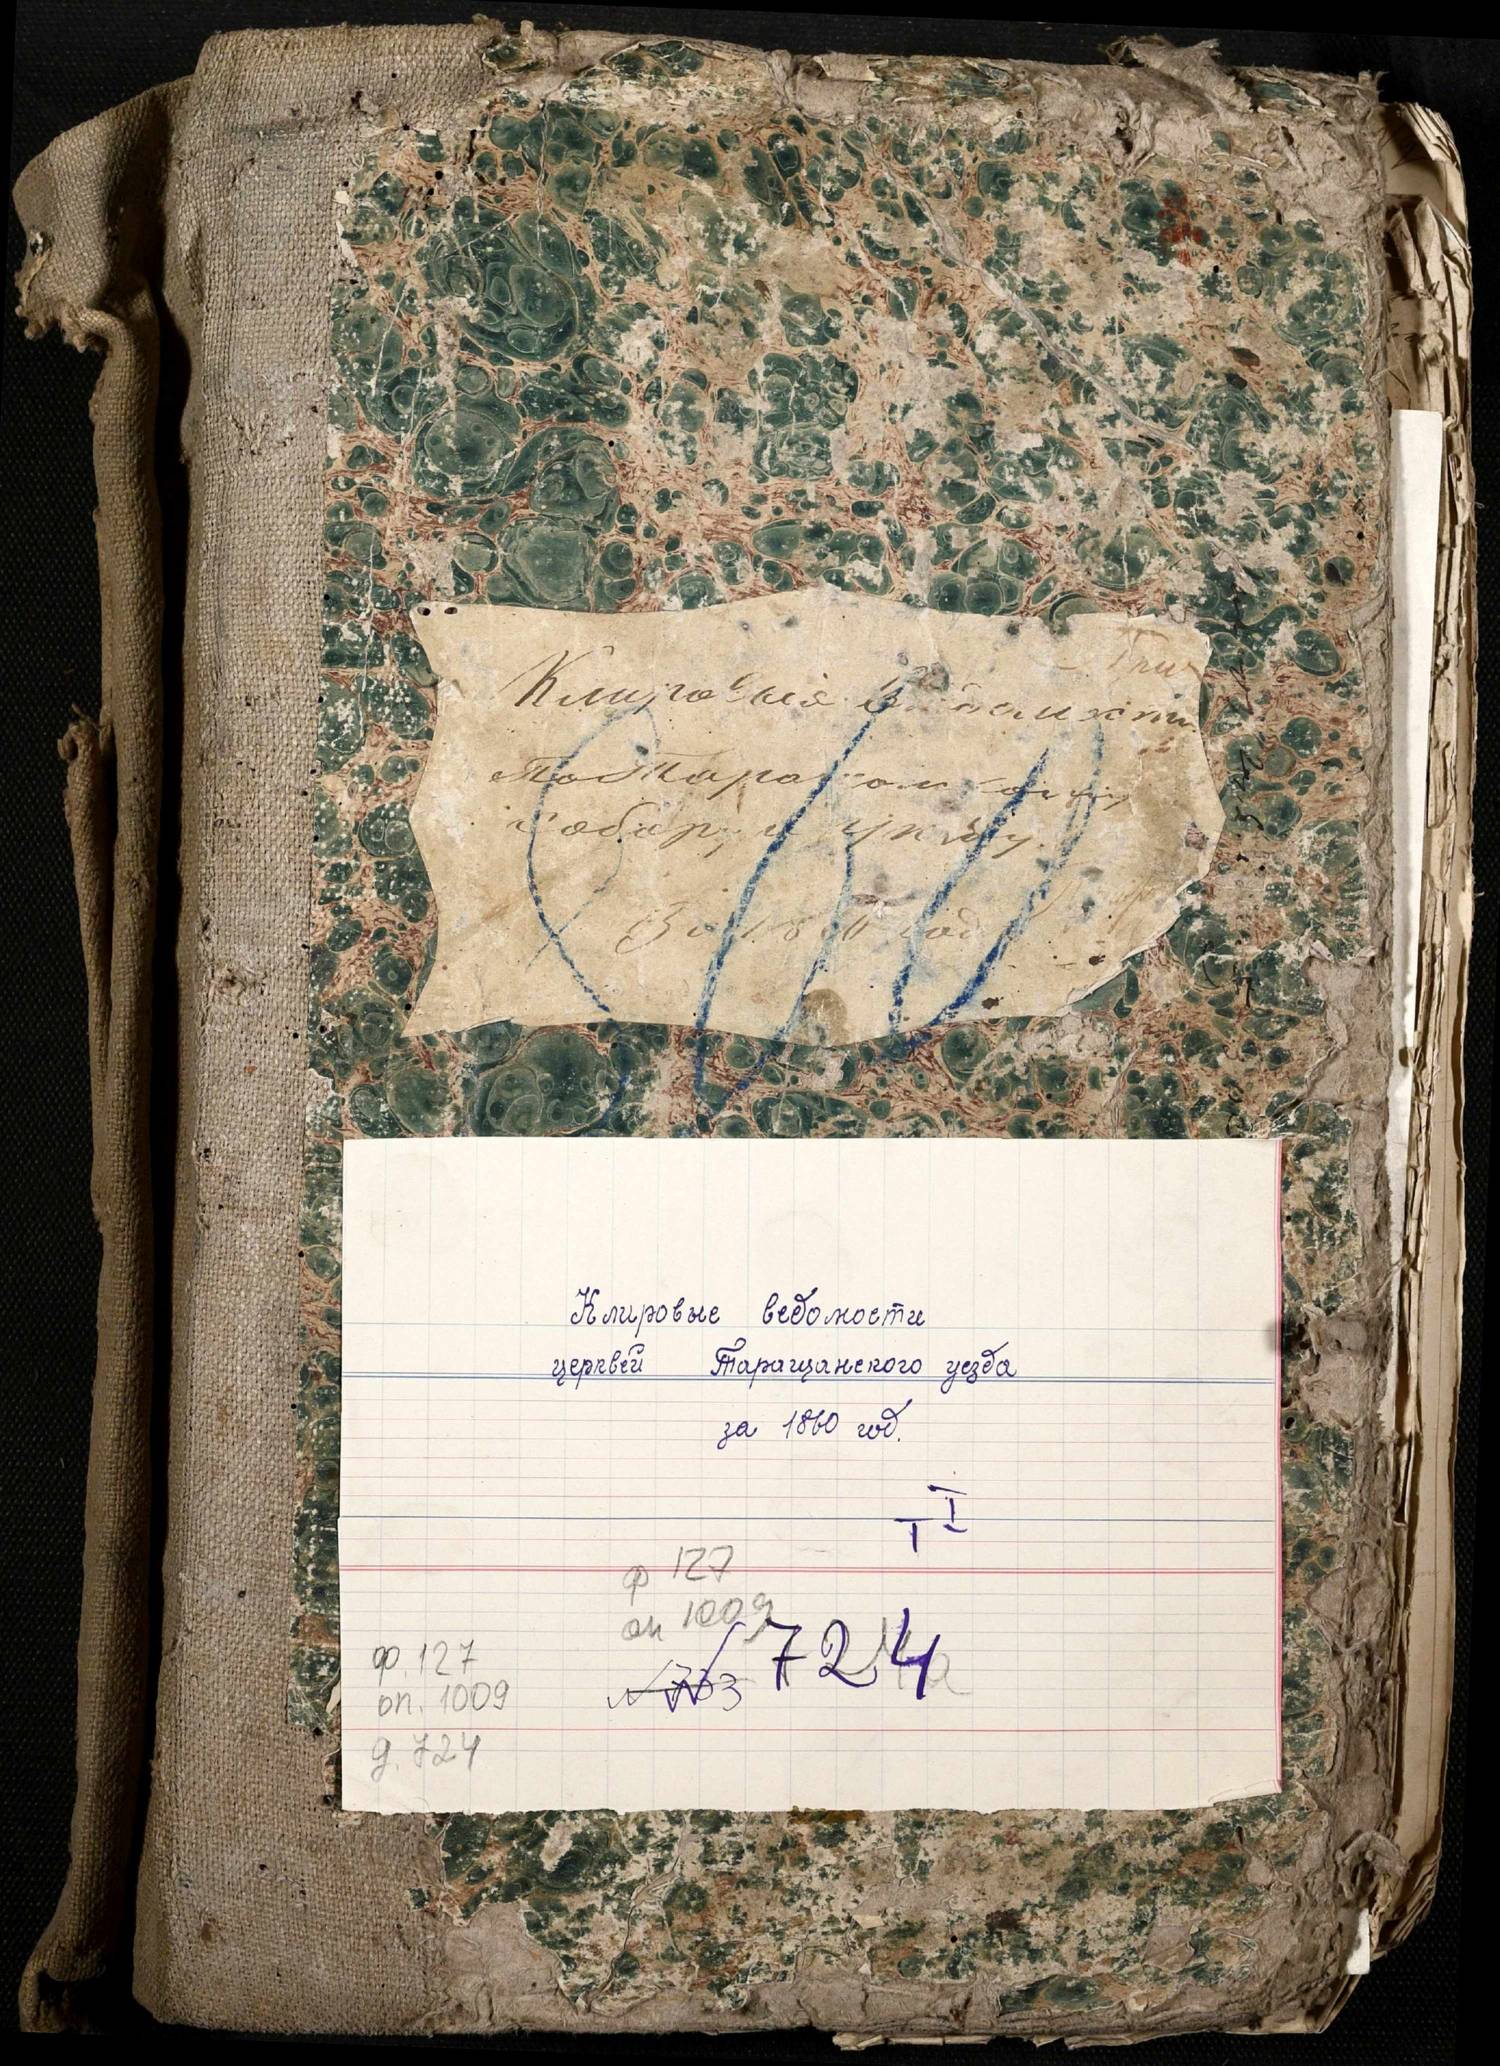 Клировыя Вѣдомости
По Таращанскому
Собору и уѣзду.
За 1860 год
Клировые ведомости
церквей Таращанского уезда
за 1860 год.
ф 127
оп 1009
724
ф. 127
оп. 1009
д. 724